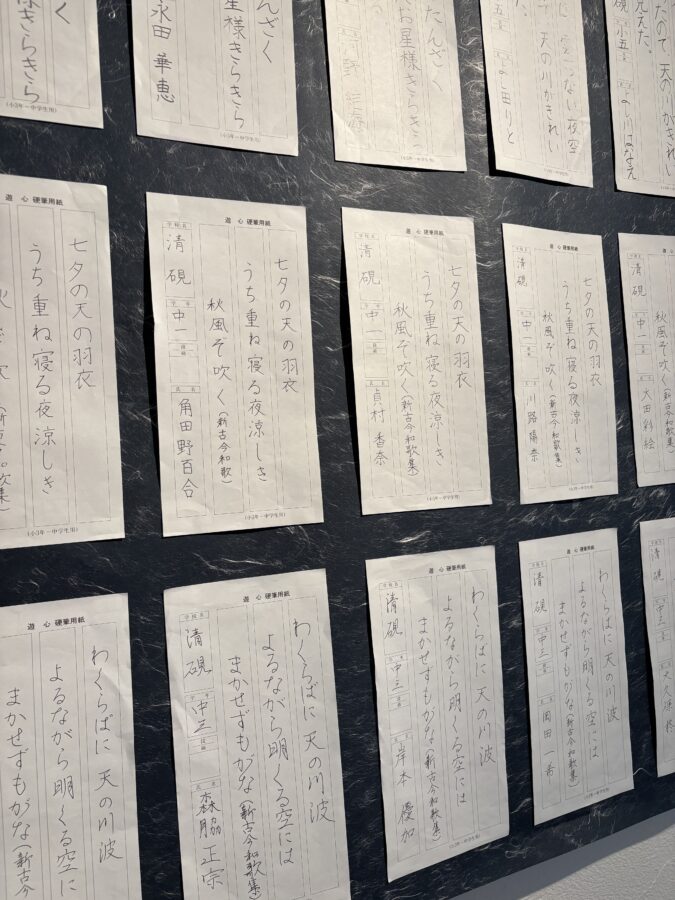 く
様きらきら
(小3年〜中学生用)
んざく
星様きらきら
永田 華恵
(小3年〜中学生用)
たんざく
お星様きらきら
(小3年〜中学生用)
天の川がきれい
ない夜空
天の川がきれい
見えた。
硯 小五
遊 心 硬筆用紙
七夕の天の羽衣
うち重ね寝る夜涼しき
(小3年〜中学生用)
遊 心 硬筆用紙
七夕の天の羽衣
うち重ね寝る夜涼しき
秋風そ吹く(新古今和歌)
学校名 清硯 学年 中一 段級 氏名 角田野百合
(小3年〜中学生用)
遊 心 硬筆用紙
七夕の天の羽衣
うち重ね寝る夜涼しき
秋風そ吹く(新古今和歌集)
学校名 清硯 学年 中一 段級 氏名 貞村 香奈
(小3年〜中学生用)
遊 心 硬筆用紙
七夕の天の羽衣
うち重ね寝る夜涼しき
秋風そ吹く(新古今和歌集)
学校名 清硯 学年 中一 段級 氏名 川路陽奈
(小3年〜中学生用)
遊 心 硬筆用紙
七夕の天の羽衣
うち重ね寝る夜涼しき
秋風そ吹く(新古今和歌集)
清硯 中一 太田彩絵
遊 心 硬筆用紙
わくらばに 天の川波
よるながら明くる空に
まかせずもがな(新古今
遊 心 硬筆用紙
わくらばに 天の川波
よるながら明くる空には
まかせずもがな(新古今和歌集)
学校名 清硯 学年 中三 段級 氏名 森脇 正宗
遊 心 硬筆用紙
わくらばに 天の川波
よるながら明くる空には
まかせずもがな(新古今和歌集)
学校名 清硯 学年 中三 段級 氏名 岸本 優加
(小3年〜中学生用)
遊 心 硬筆用紙
わくらばに 天の川波
よるながら明くる空には
まかせずもがな(新古今和歌集)
学校名 清硯 学年 中三 段級 氏名 岡田 一香
(小3年〜中学生用)
清硯 中三